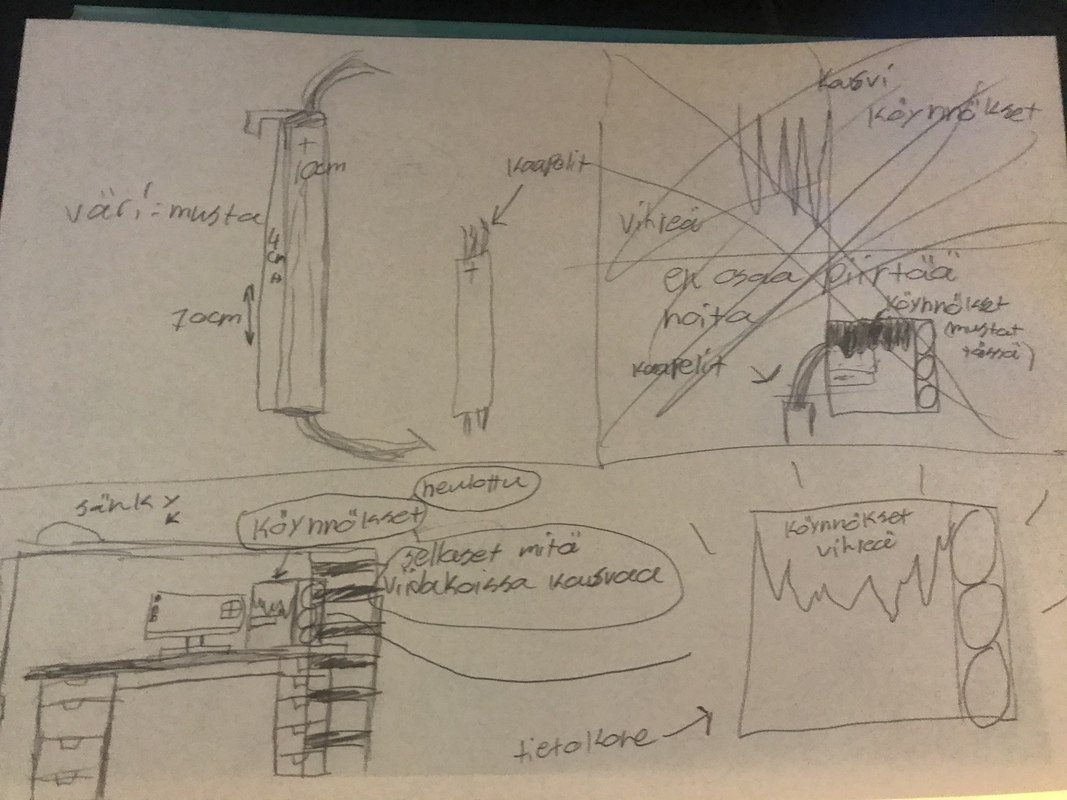 +
10cm
väri: musta
4
cm
70cm
kaapelit
+
kasvi
köynnökset
vihreä
en osaa piirtää
noita
köynnökset
(mustat
tässä)
kaapelit
sänky
neulottu
köynnökset
sellaset mitä
viidakoissa kasvaa
köynnökset
vihreä
tietokone